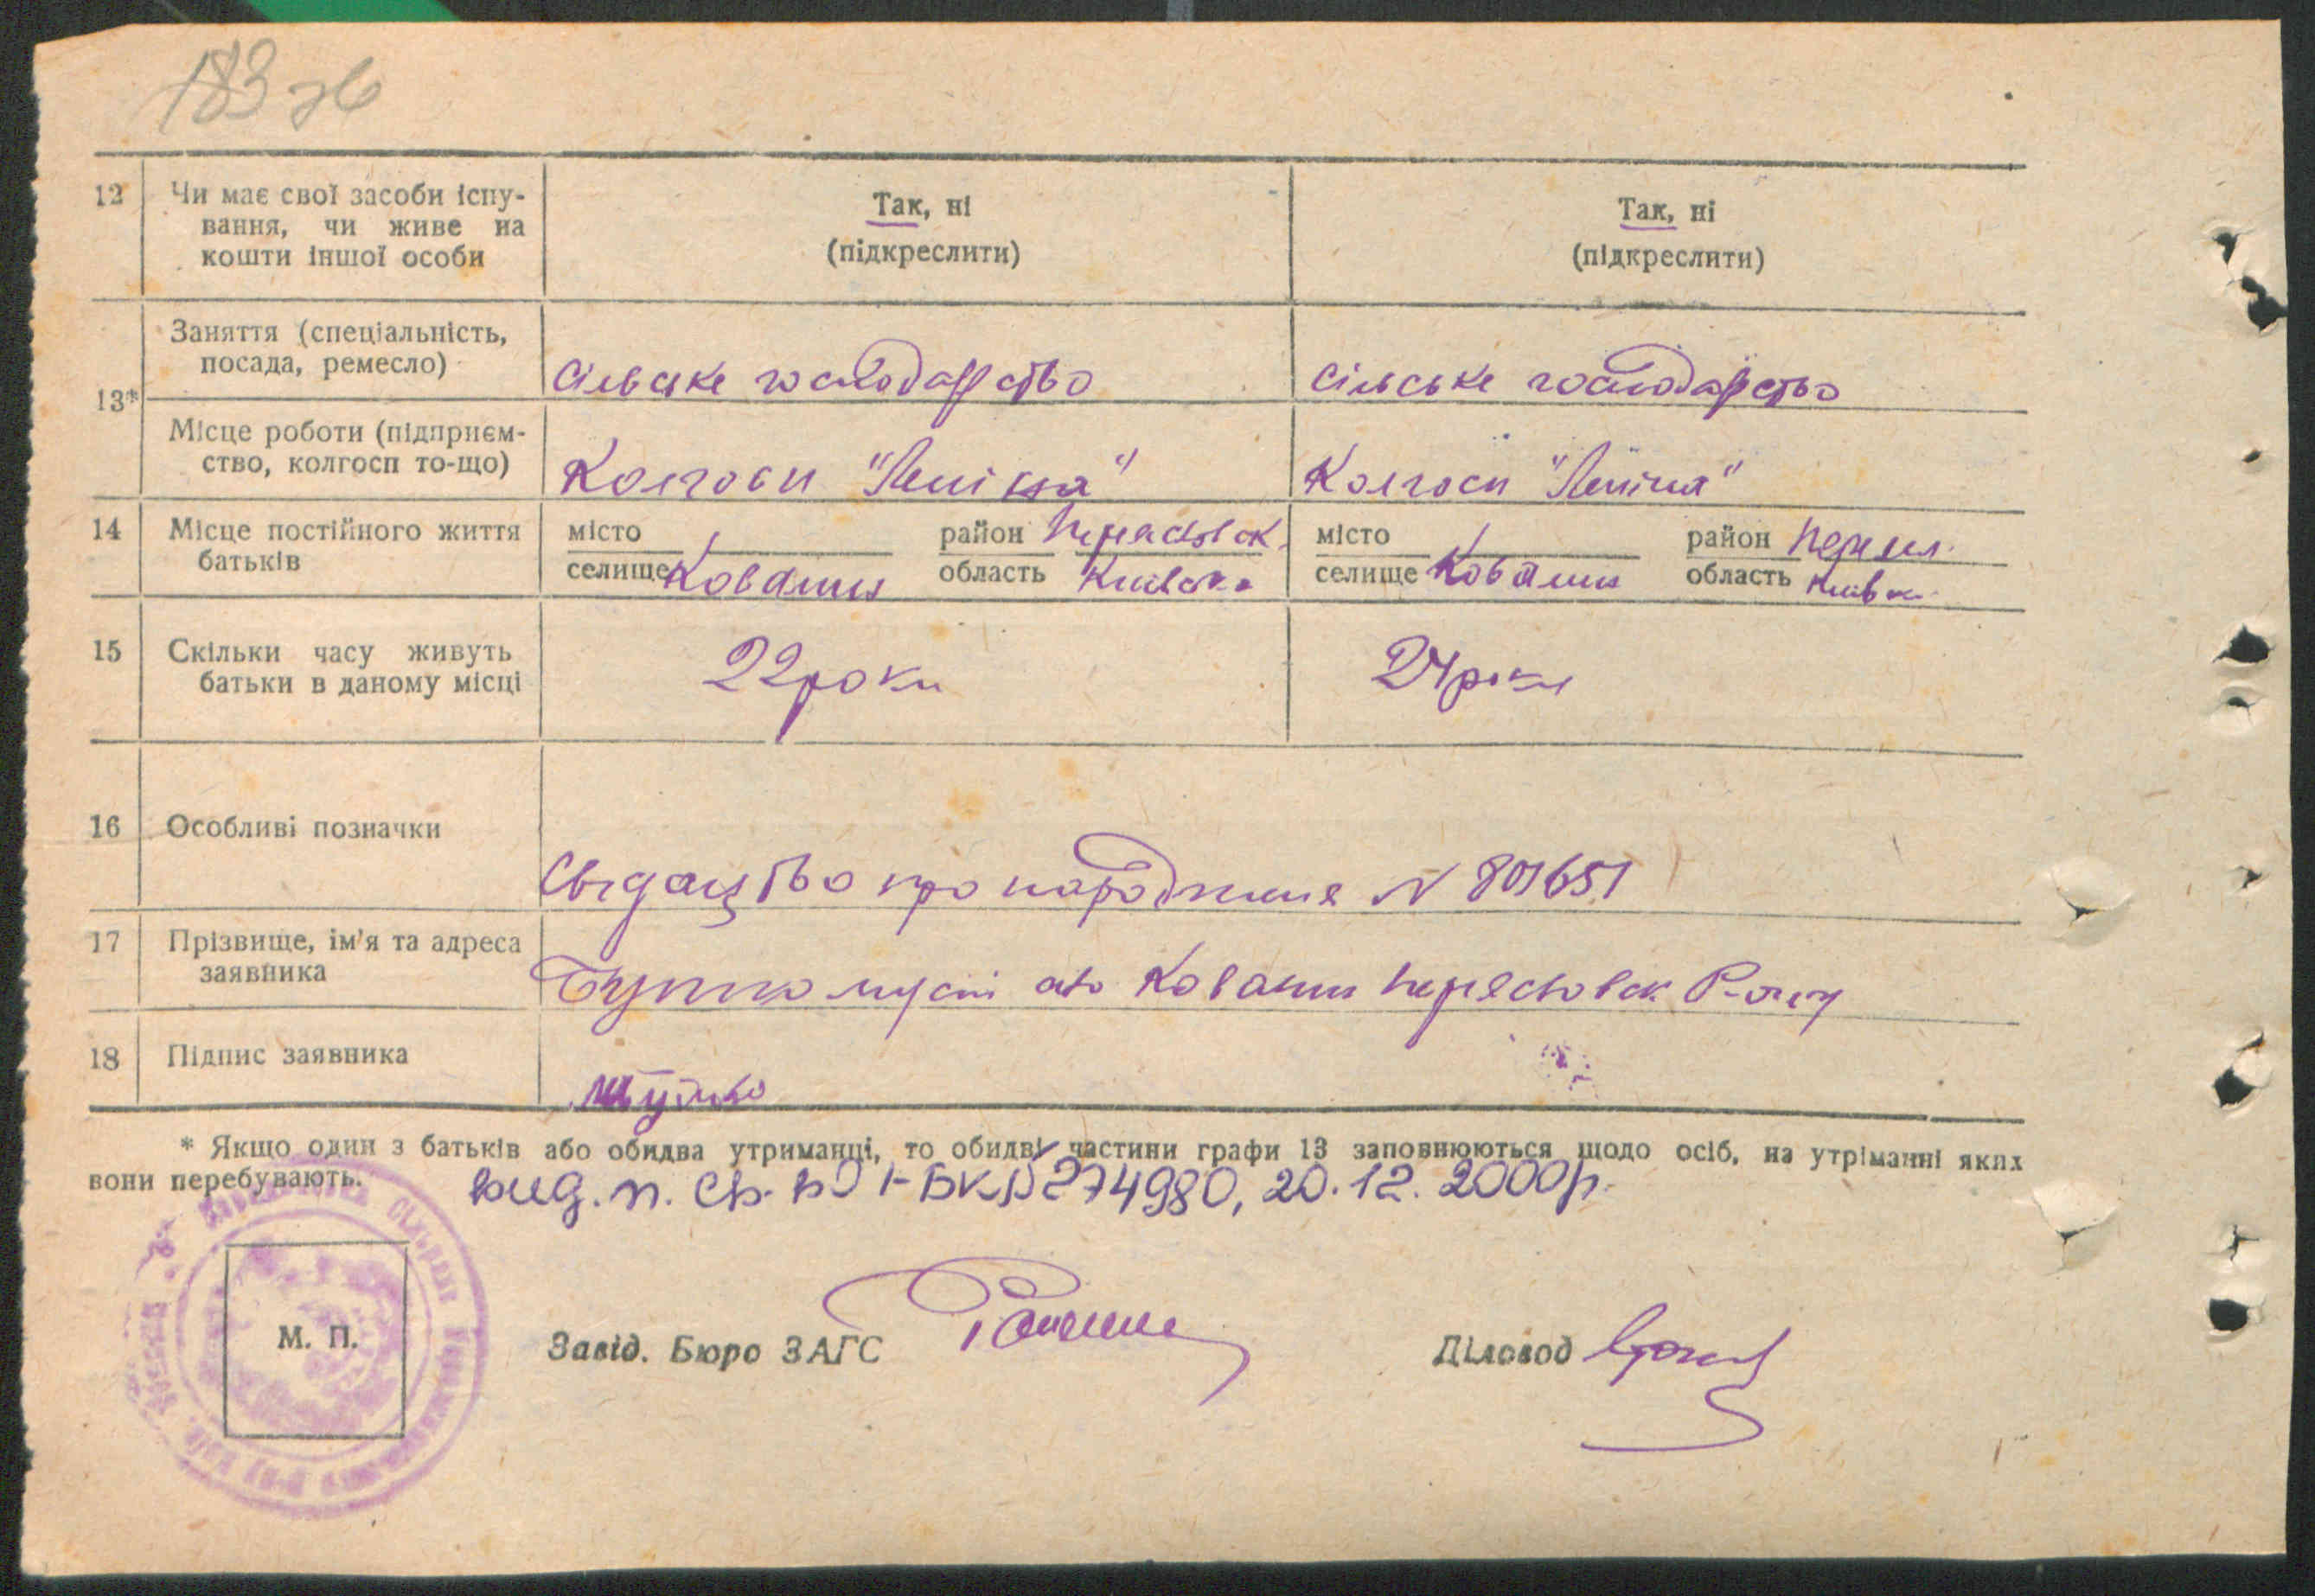 183 зв
12 Чи має свої засоби існу-
вання, чи живе на
кошти іншої особи
Так, ні
(підкреслити)
Так, ні
(підкреслити)
13*
Заняття (спеціальність,
посада, ремесло)
сільське господарство
сільське господарство
Місце роботи (підприєм-
ство, колгосп то-що)
Колгосп "Леніна"
Колгосп "Леніна"
14 Місце постійного життя
батьків
місто
селище Ковалин
район Переясловск.
область Київск.
місто
селище Ковалин
район Переясл.
область Київск.
15 Скільки часу живуть
батьки в даному місці
22 роки
24 роки
16 Особливі позначки
Свідоцтво про народження N 801651
17 Прізвище, ім'я та адреса
заявника
Ковалин Переясловск Р-ону
18 Підпис заявника
* Якщо один з батьків або обидва утриманці, то обидві частини графи 13 заповнюються щодо осіб, на утріманні яких
вони перебувають.
вид. п. св. во І-БК № 274980, 20.12.2000р.
М. П.
Завід. Бюро ЗАГС
Діловод